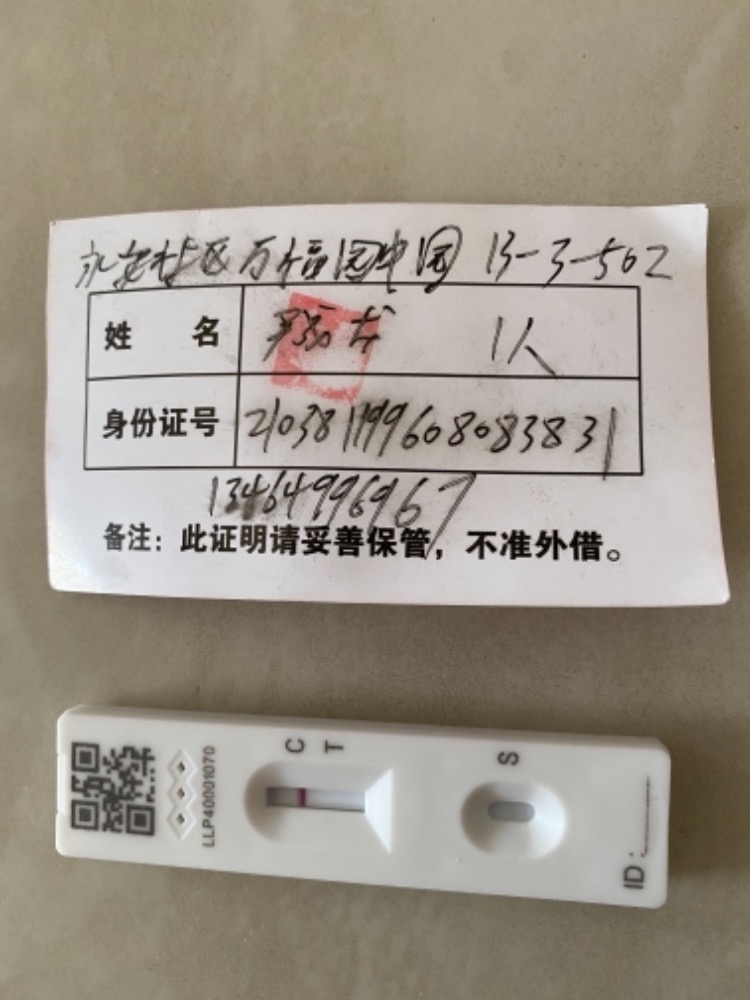 永安社区万福园中园 13-3-502
姓 名 1人
身份证号 210381199608083831
13464996967
备注：此证明请妥善保管，不准外借。
LLP40001070
C T
S
ID: